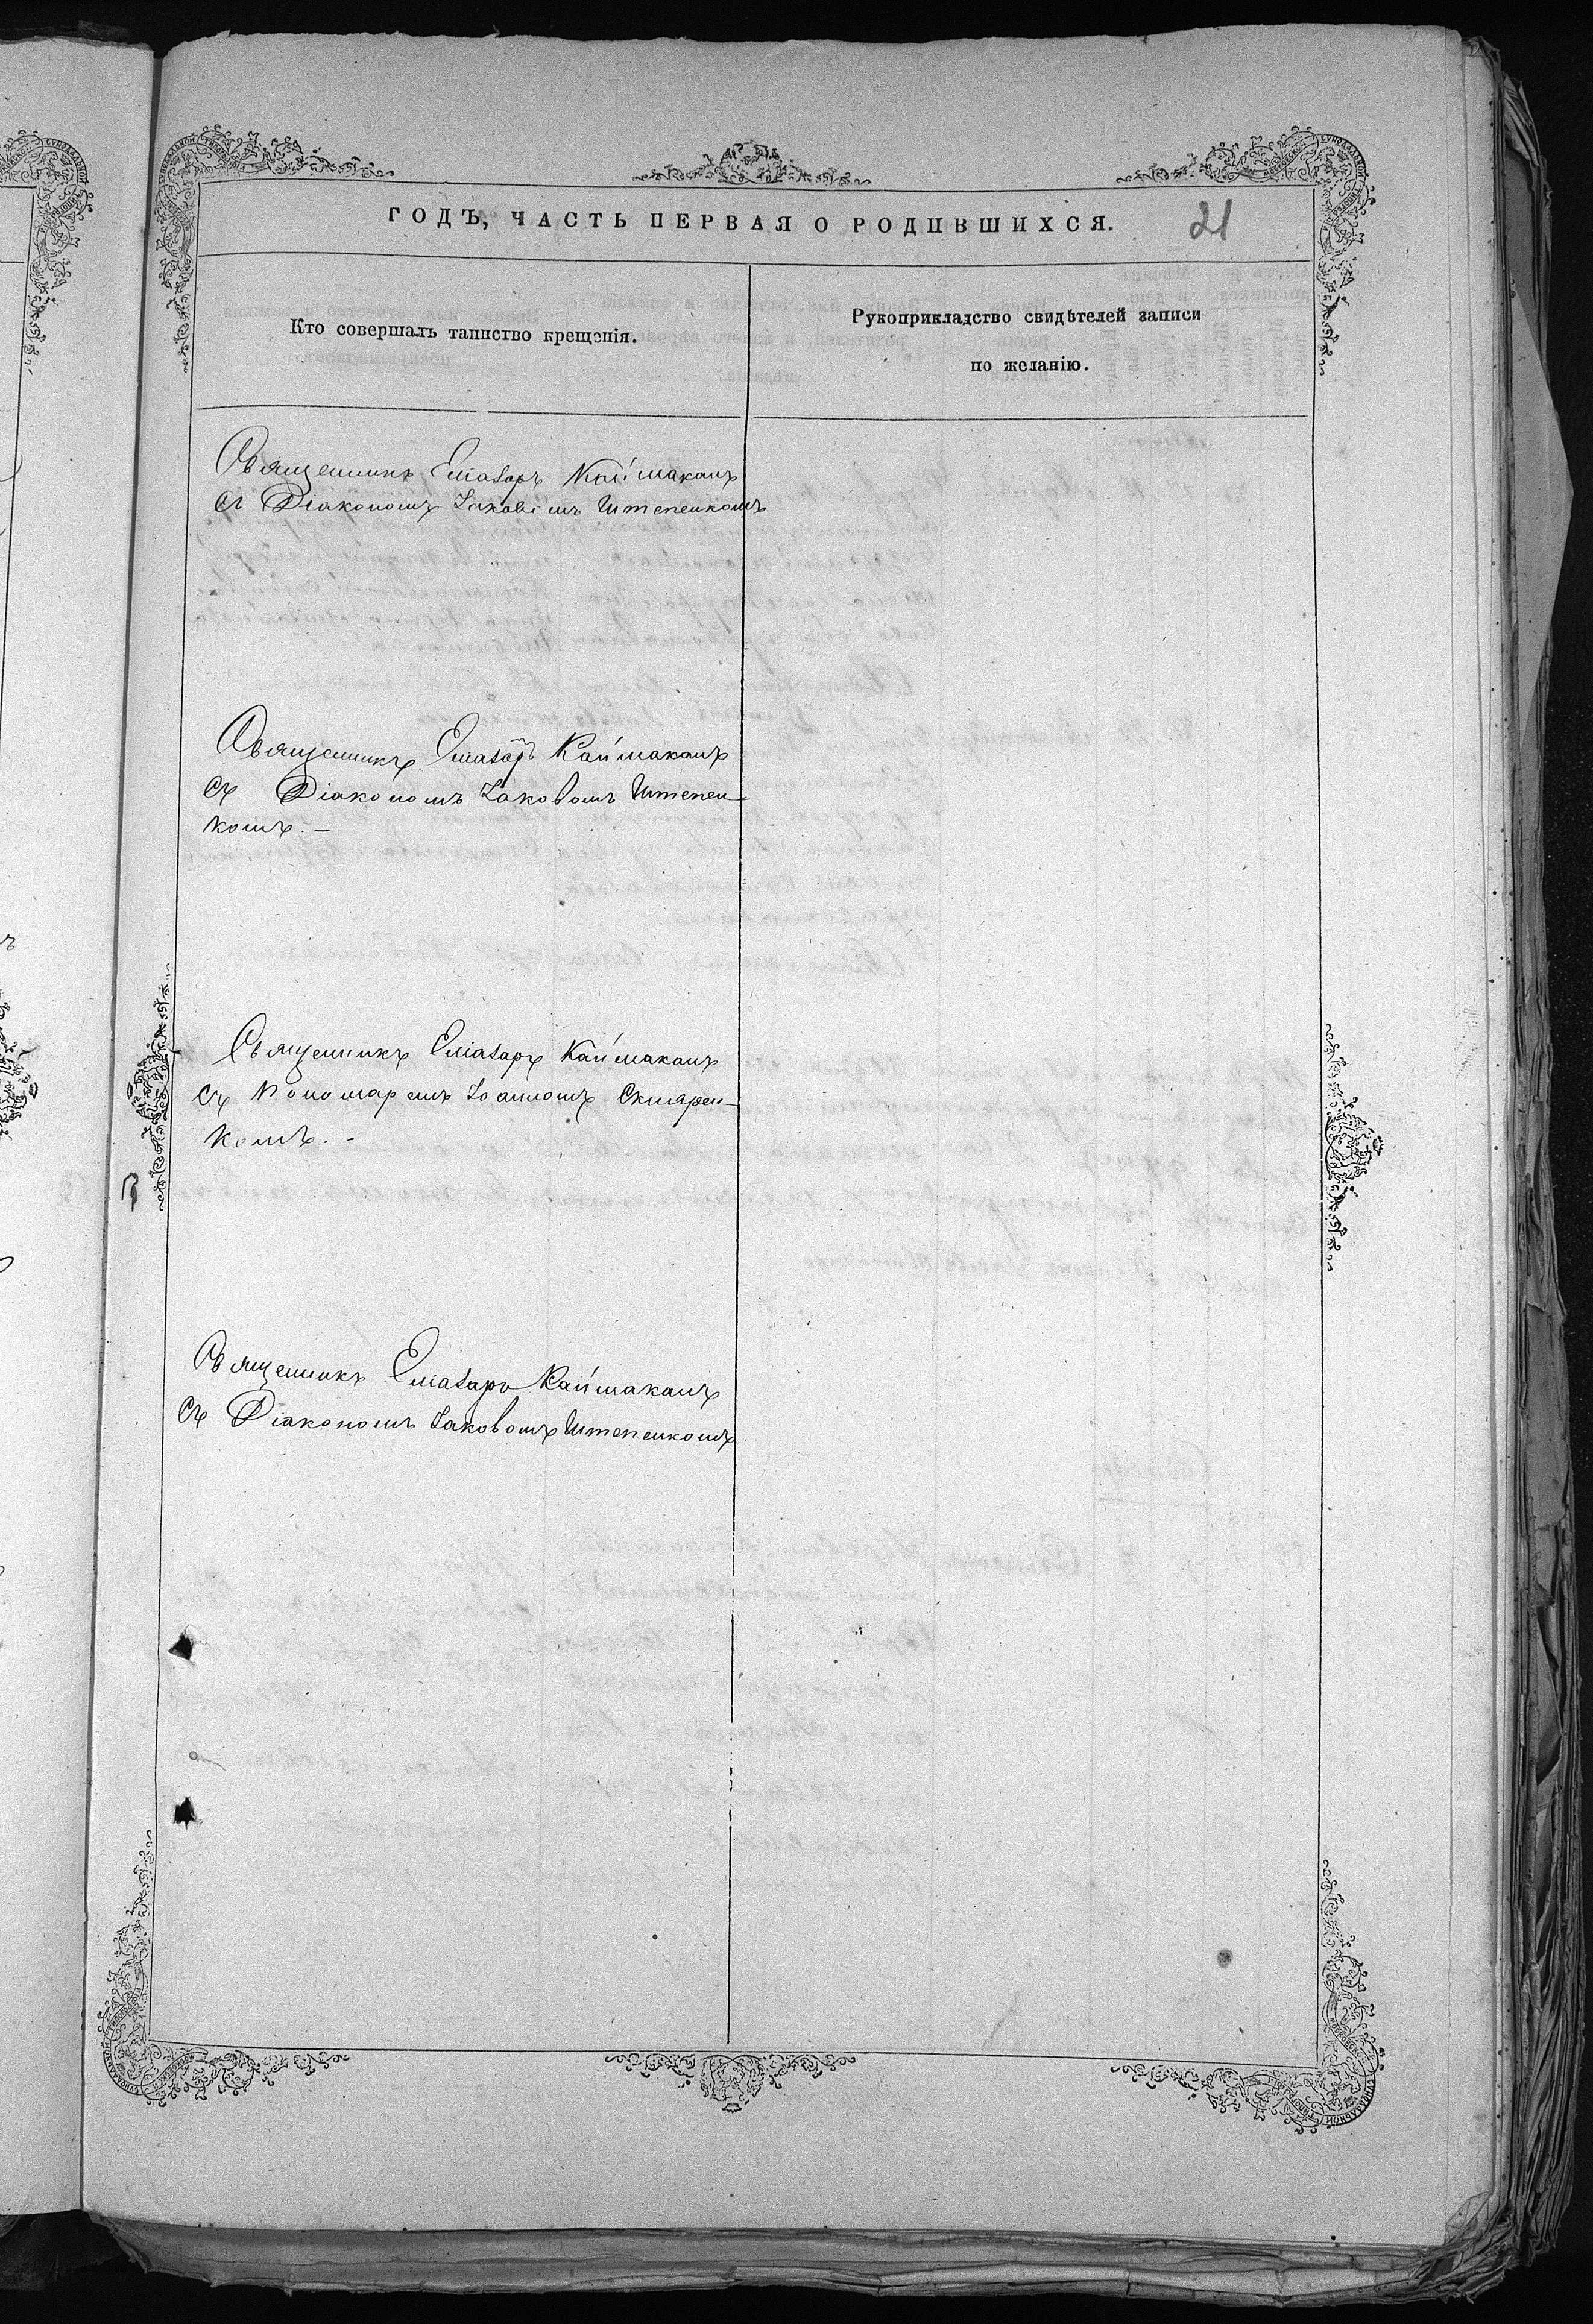 ГОДЪ, ЧАСТЬ ПЕРВАЯ О РОДИВШИХСЯ. 21
Кто совершалъ таинство крещенія.
Рукоприкладство свидѣтелей записи
по желанію.
Священникъ Еліазаръ Каймаканъ
съ Діакономъ Іаковомъ Штепенкомъ
Священникъ Еліазаръ Каймаканъ
съ Діакономъ Іаковомъ Штепен-
комъ. –
Священникъ Еліазаръ Каймаканъ
съ Пономаремъ Іоанномъ Склярен-
комъ. -
Священникъ Еліазаръ Каймаканъ
съ Діакономъ Іаковомъ Штепенкомъ